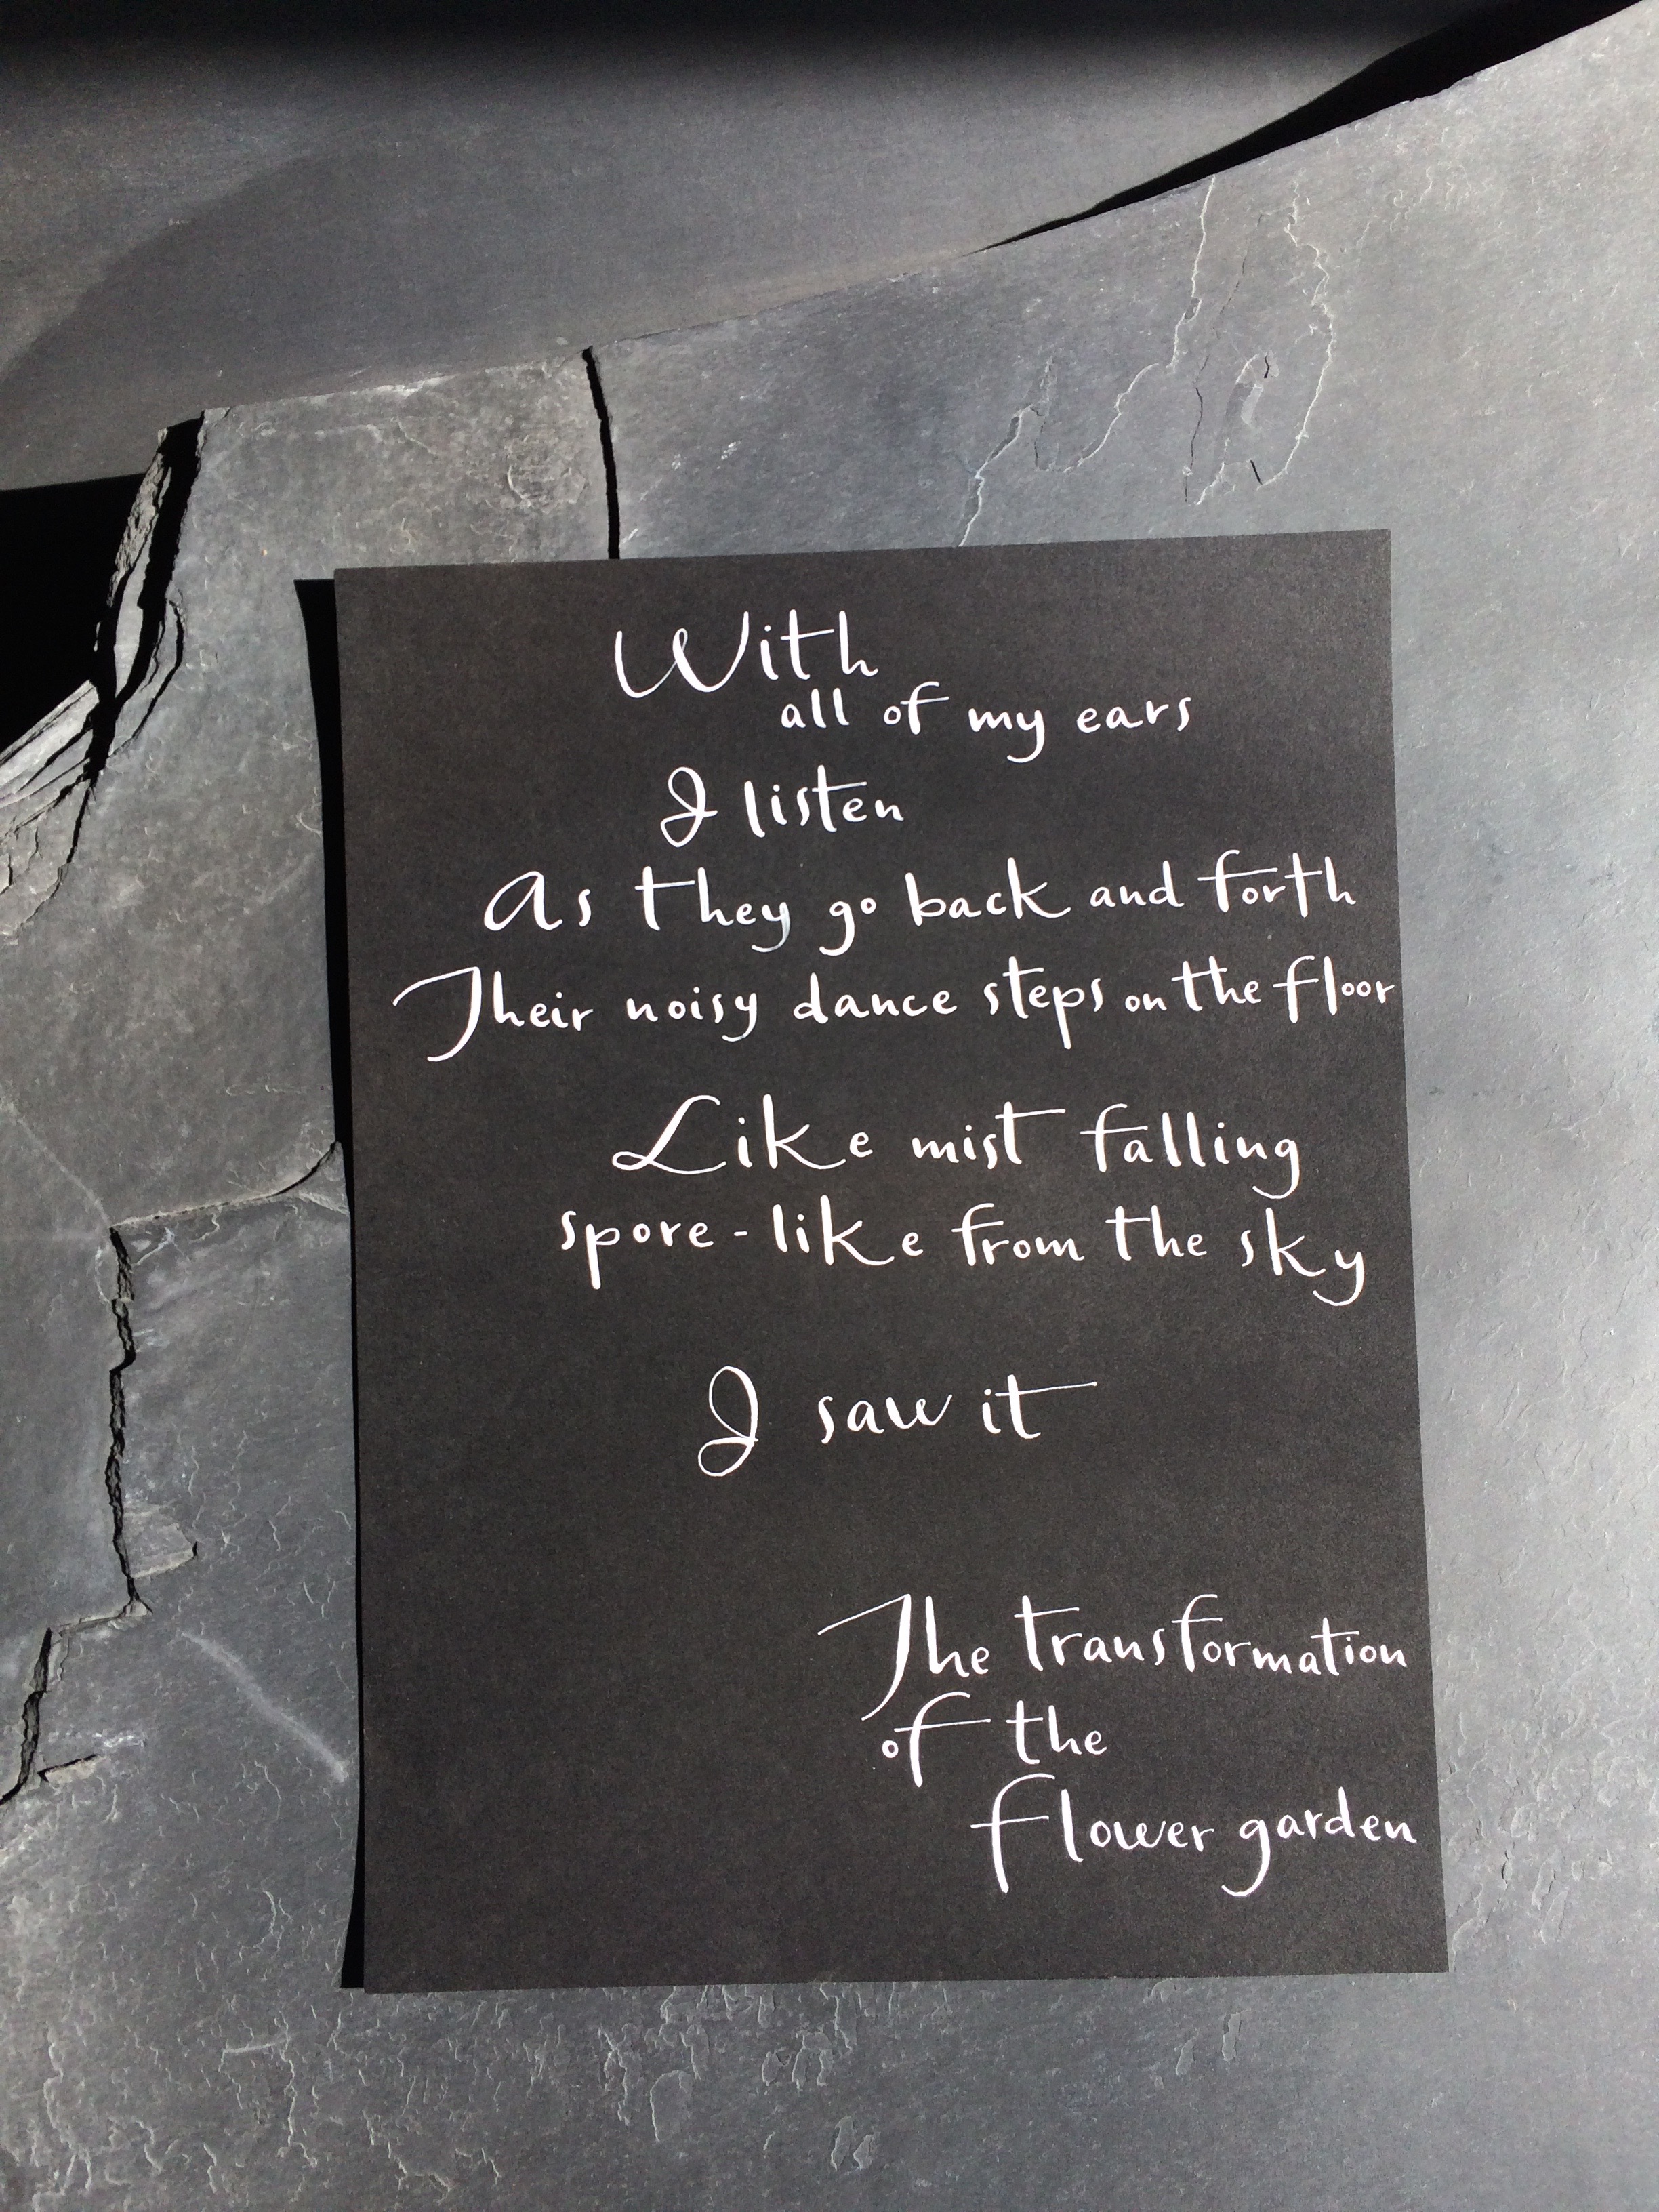 With
all of my ears
I listen
As they go back and forth
Their noisy dance steps on the floor
Like mist falling
spore-like from the sky
I saw it
The transformation
of the
flower garden